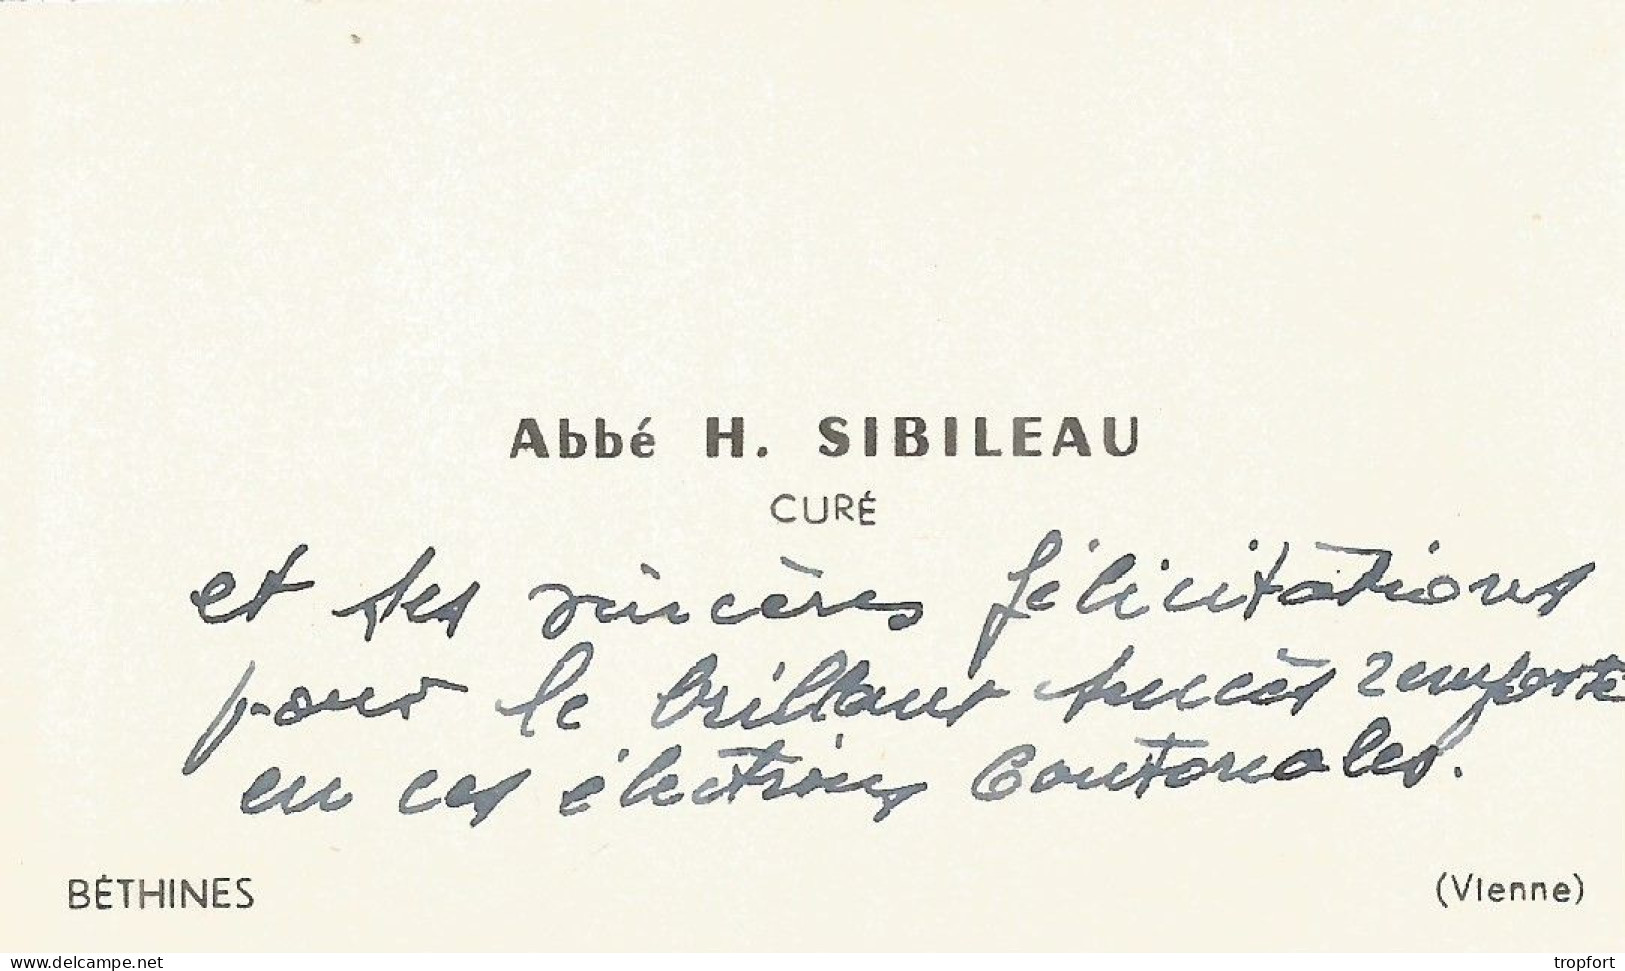 Abbé H. SIBILEAU
CURÉ
et ses sincères félicitations
pour le brillant succès remporté
en ces élections Cantonales.
BÉTHINES (Vienne)
www.delcampe.net tropfort